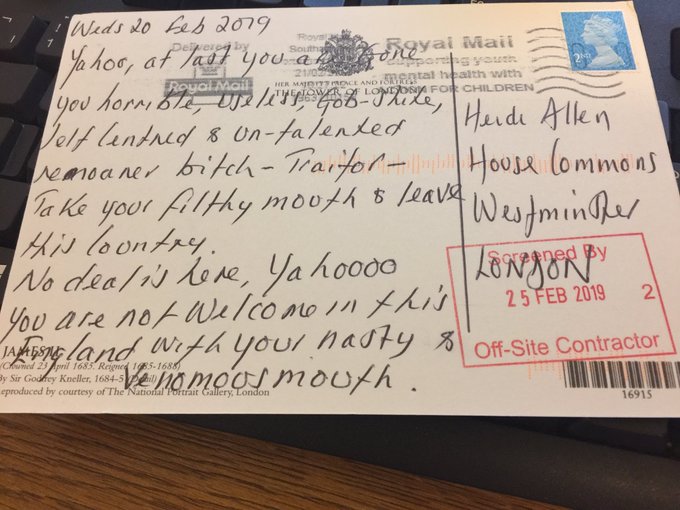 Weds 20 Feb 2019
Yahoo, at last you are gone
you horrible, useless, Gob-shite,
self centred & un-talented
remoaner bitch - Traitor -
Take your filthy mouth & leave
this country.
No deal is here, Yahoooo
you are not welcome in this
England with your nasty &
venomous mouth.
Delivered by
Royal Mail
Royal Mail
supporting youth
mental health with
FOR CHILDREN
HER MAJESTY'S PALACE AND FORTRESS
THE TOWER OF LONDON
2ND
Heidi Allen
House Commons
Westminster
LONDON
Screened By
25 FEB 2019 2
Off-Site Contractor
JAMES II
(Crowned 23 April 1685. Reigned 1685-1688)
By Sir Godfrey Kneller, 1684-5 (Detail)
Reproduced by courtesy of The National Portrait Gallery, London
16915